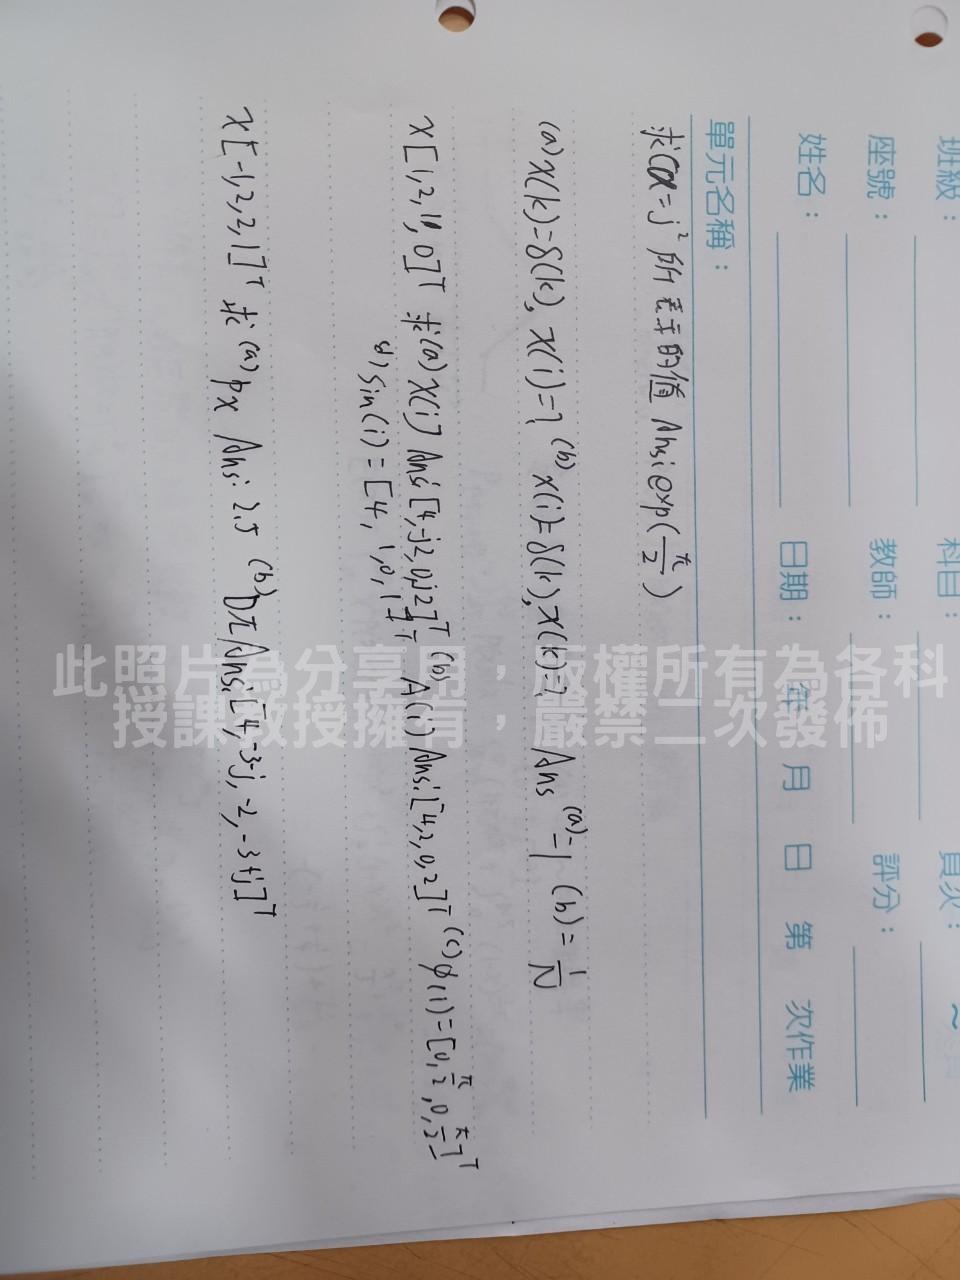 班級：
科目：
頁次：
～
座號：
教師：
評分：
姓名：
日期：
年 月 日 第 次作業
單元名稱：
所表示的值 Ans: exp(π/2)
(a) x(k)=δ(k), x(i)=? (b) x(i)=δ(k), x(k)=? Ans (a)=1 (b)=1/N
求(a) x(i) Ans:[4,-j2,0,j2]ᵀ (b) A(i) Ans:[4,2,0,2]ᵀ (c) φ(i)=[0,π/2,0,π/2]ᵀ
sin(i)=[4,1,0,1]ᵀ
x[-1,2,2,1]ᵀ 求(a) px Ans: 2.5 (b) Ans:[4,-3-j,-2,-3+j]ᵀ
此照片為分享用，版權所有為各科
授課教授擁有，嚴禁二次發佈